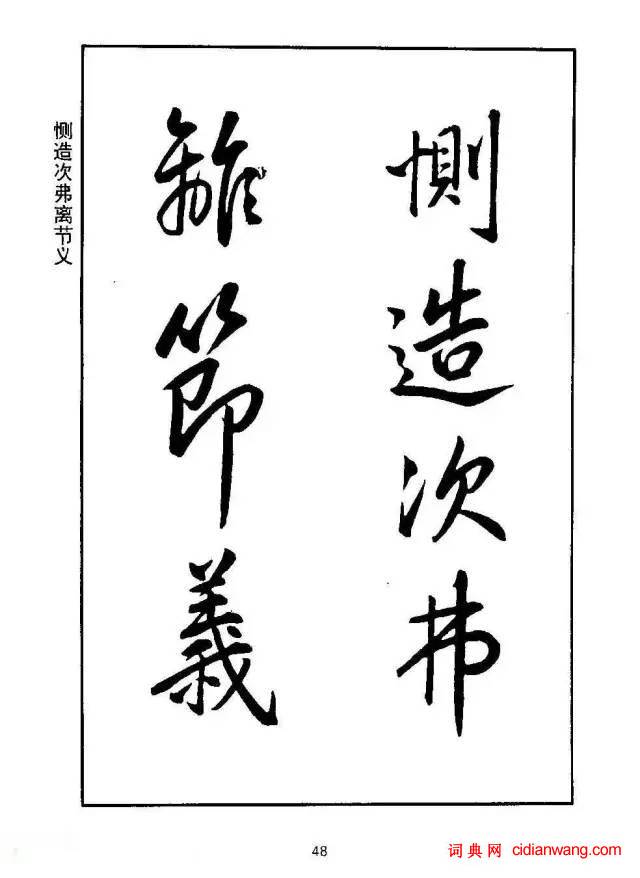 惻造次弗
離節義
恻造次弗离节义
48
词典网 cidianwang.com